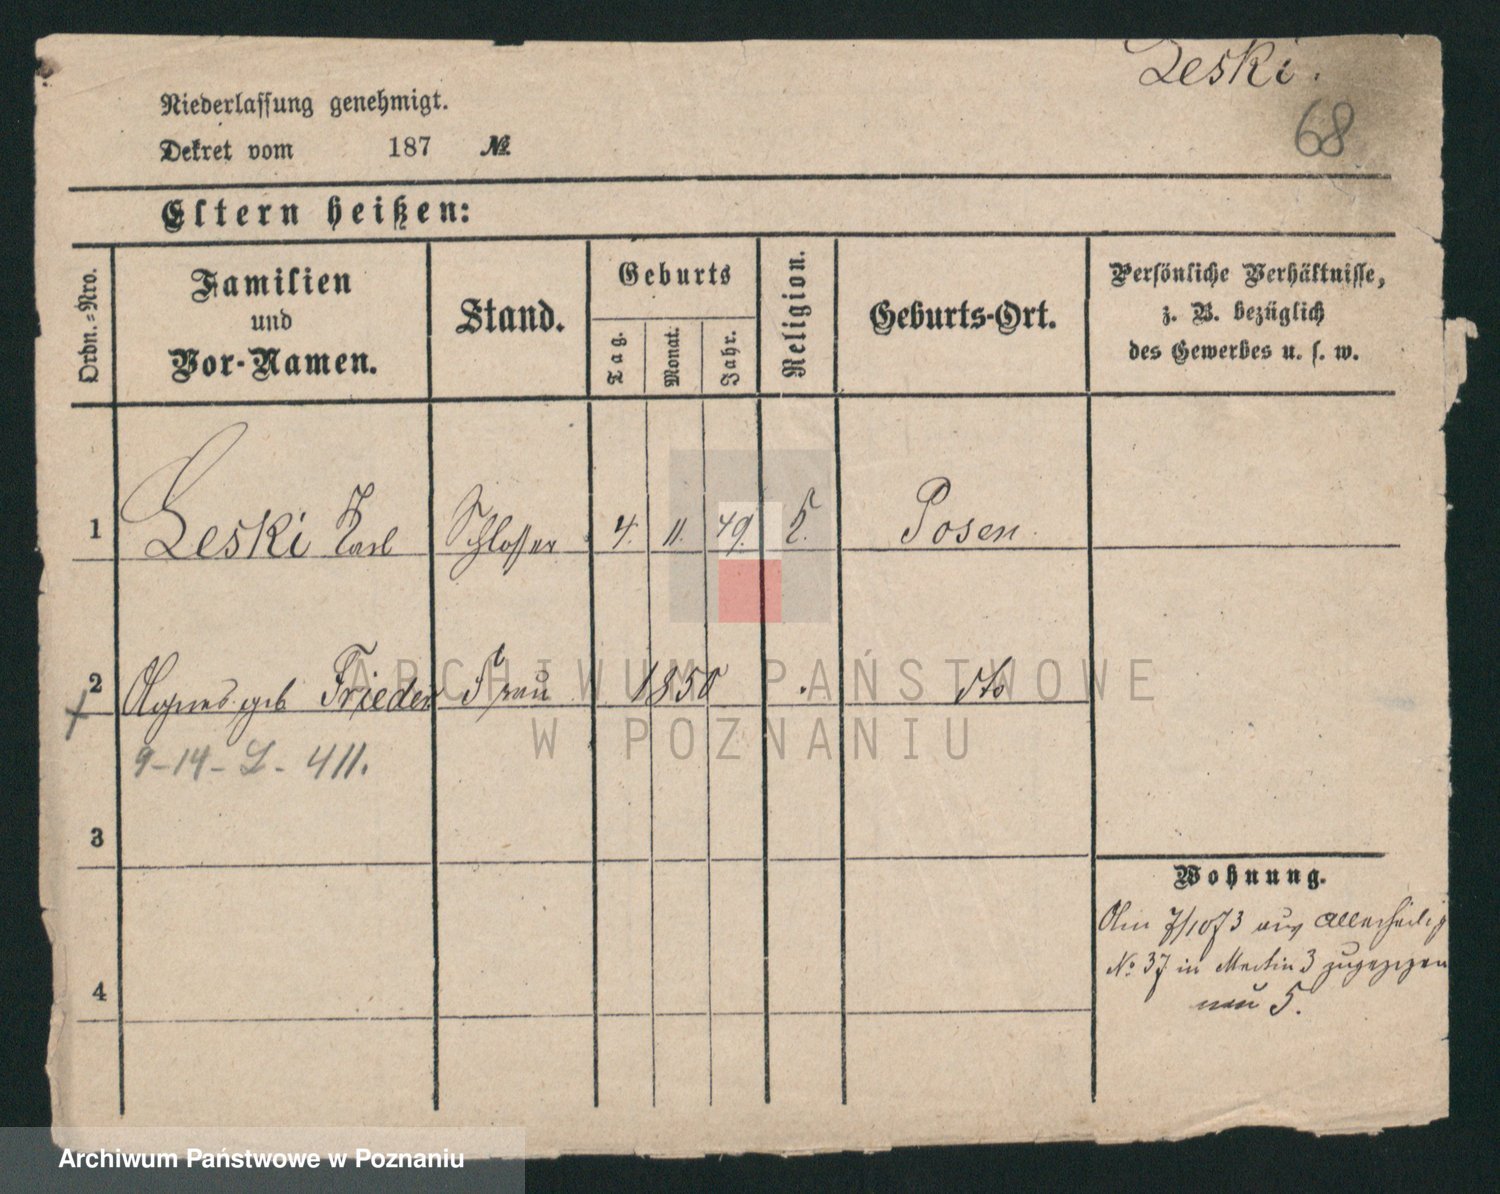 Leski.
68
Niederlassung genehmigt.
Dekret vom 187 №
Eltern heißen:
Ordn.=Nro.
Familien
und
Vor-Namen.
Stand.
Geburts
Tag.
Monat.
Jahr.
Religion.
Geburts-Ort.
Persönliche Verhältnisse,
z. B. bezüglich
des Gewerbes u. s. w.
1 Leski Karl Schlosser 4. 11. 49. Posen.
2 Agnes geb Frieder Frau 1850 dto
9-14-L-411.
3
4
Wohnung.
Am 7/1073 aus Allerheilig
No 37 in Martin 3 zugezogen
neu 5.
ARCHIWUM PAŃSTWOWE
W POZNANIU
Archiwum Państwowe w Poznaniu